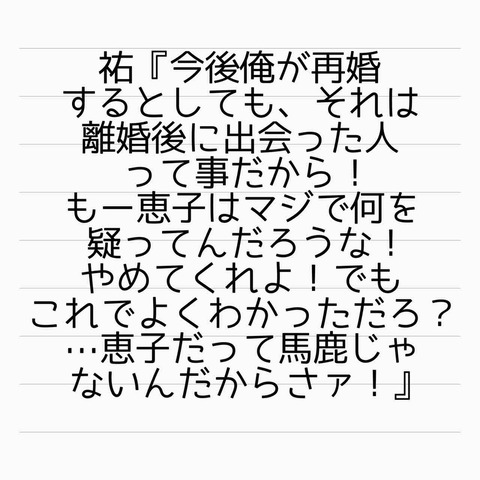 祐『今後俺が再婚
するとしても、それは
離婚後に出会った人
って事だから！
もー恵子はマジで何を
疑ってんだろうな！
やめてくれよ！でも
これでよくわかっただろ？
…恵子だって馬鹿じゃ
ないんだからさァ！』